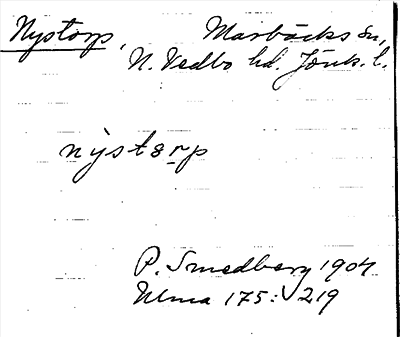 Nystorp, Marbäcks sn,
N. Vedbo hd. Jönk. l.
nỳstorp
P. Smedberg 1904
Ulma 175: 219